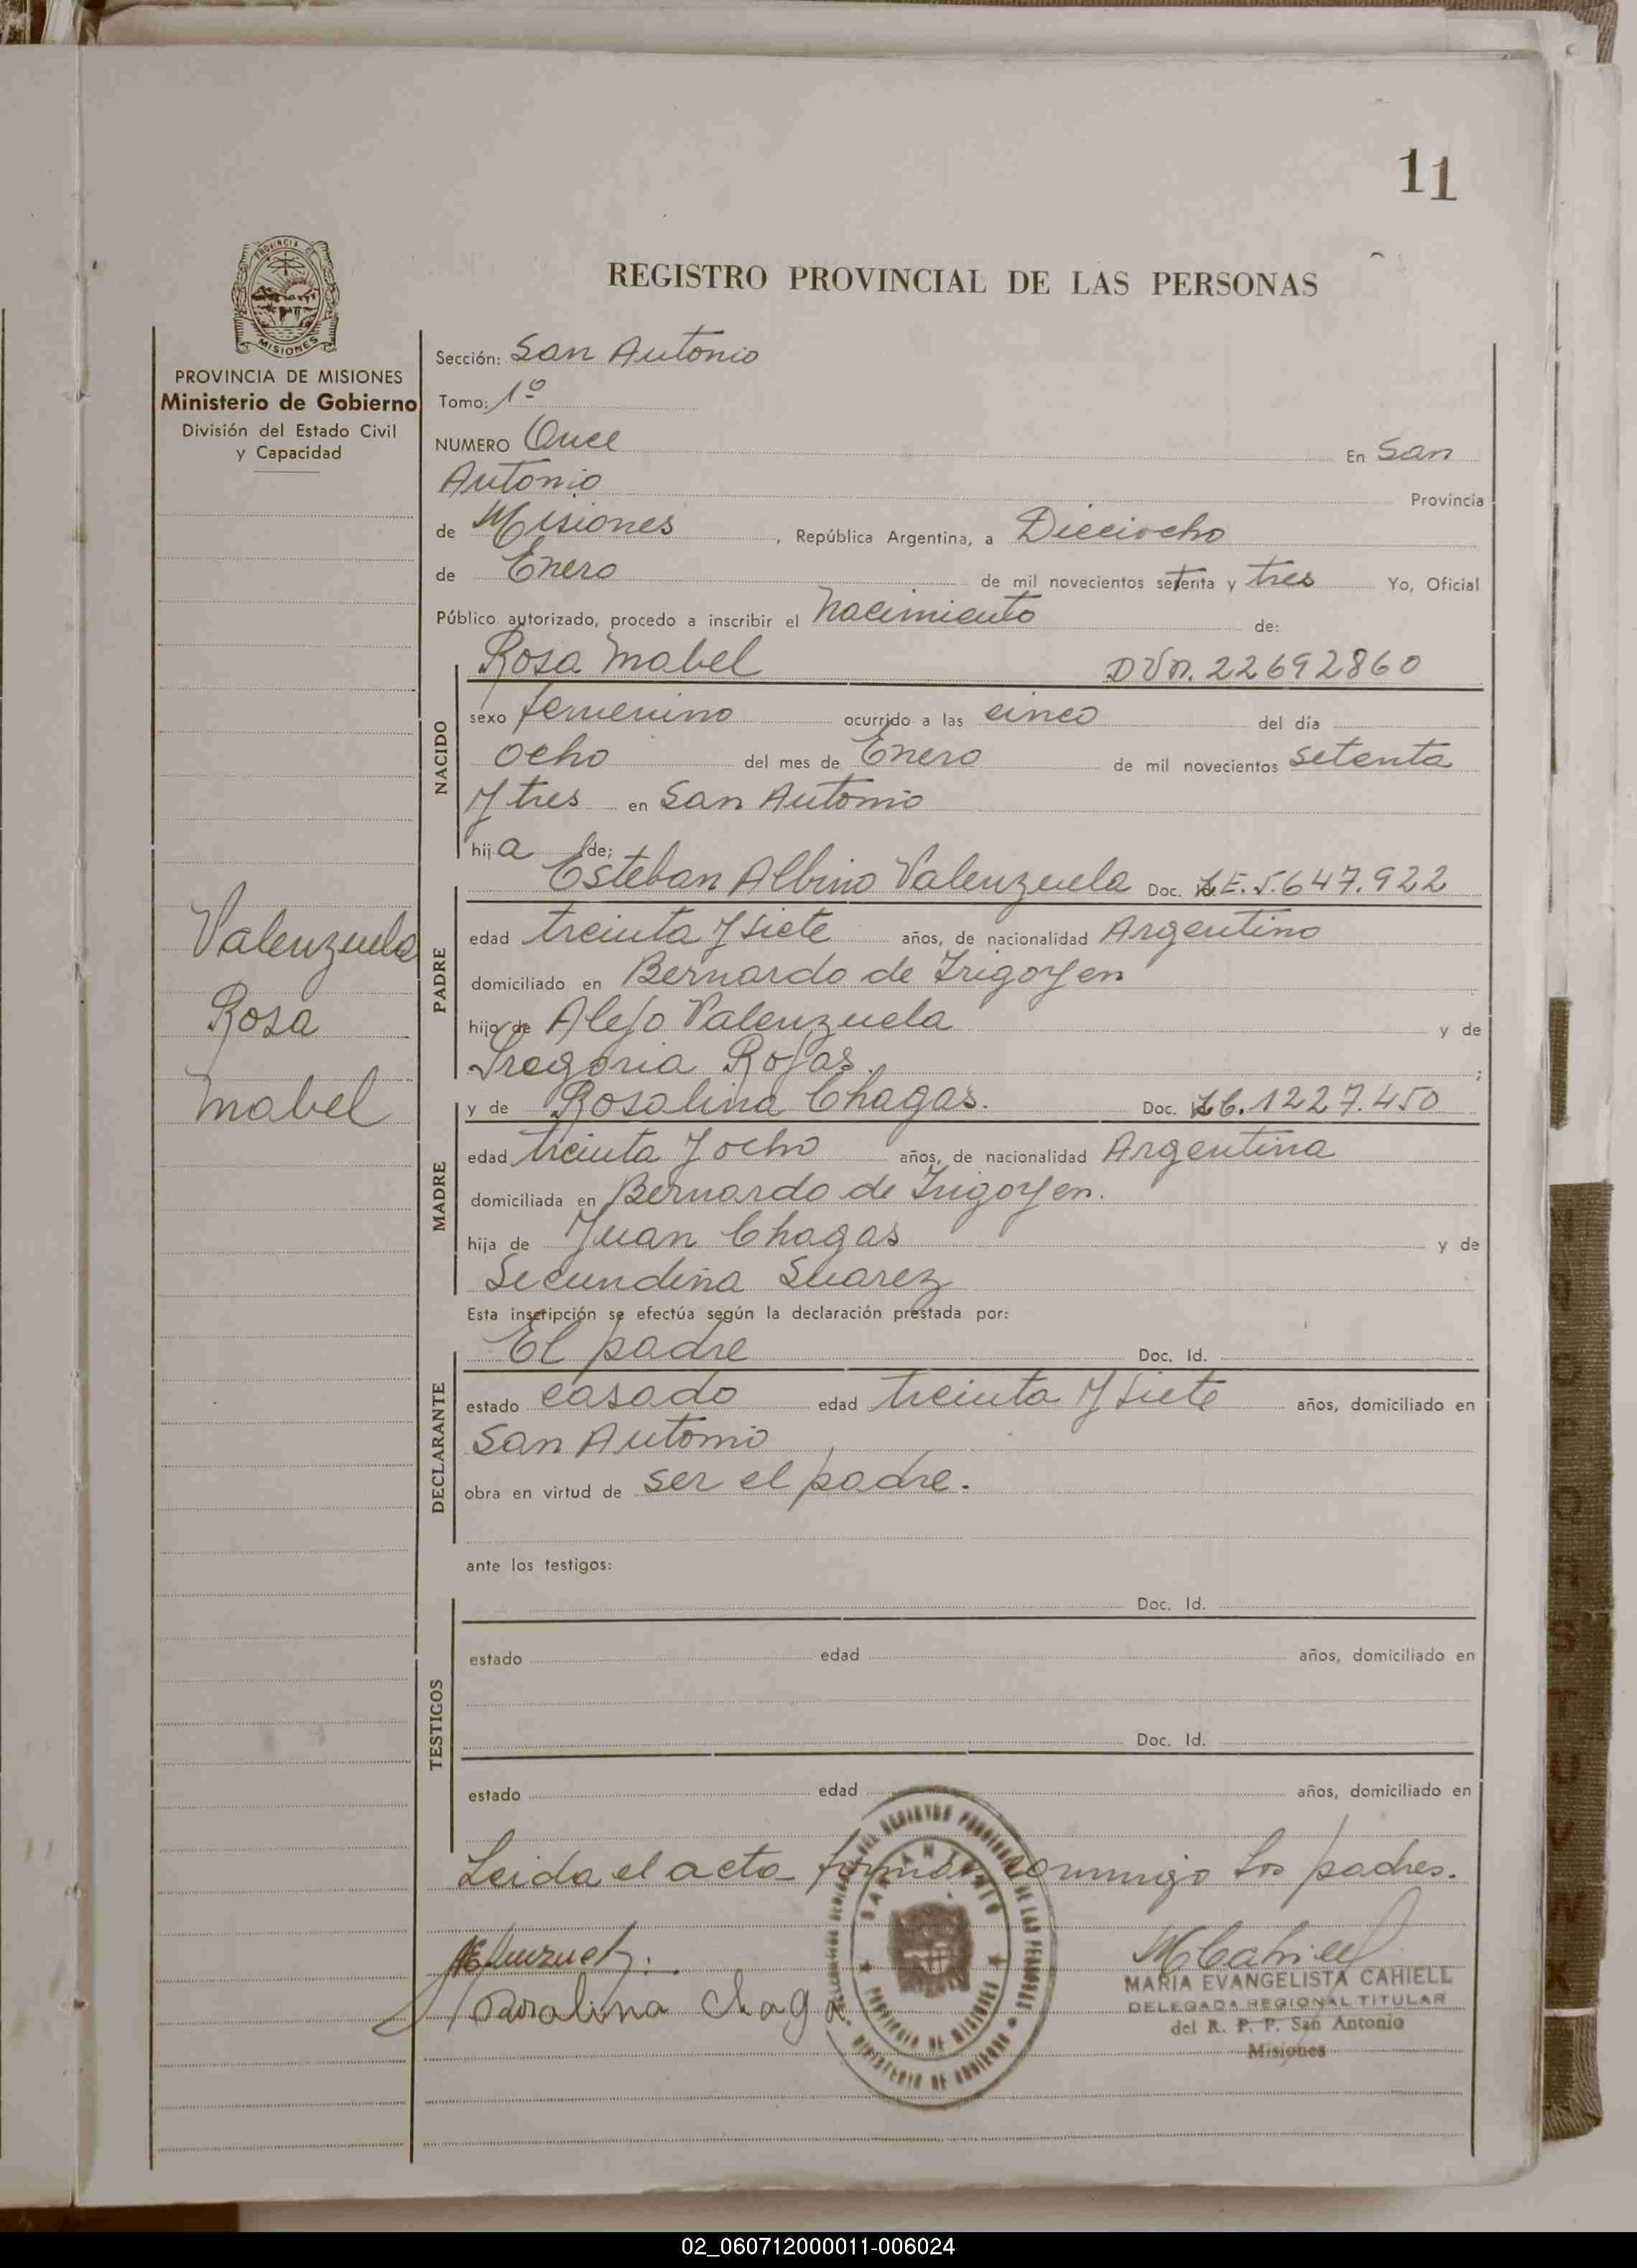 11
REGISTRO PROVINCIAL DE LAS PERSONAS
PROVINCIA DE MISIONES
Ministerio de Gobierno
División del Estado Civil
y Capacidad
Valenzuela
Rosa
Mabel
Sección: San Antonio
Tomo: 1º
NUMERO Once En San
Antonio Provincia
de Misiones, República Argentina, a Dieciocho
de Enero de mil novecientos setenta y tres Yo, Oficial
Público autorizado, procedo a inscribir el Nacimiento de:
Rosa Mabel 22692860
NACIDO
sexo femenino ocurrido a las cinco del día
ocho del mes de Enero de mil novecientos setenta
y tres en San Antonio
hija de;
PADRE
Esteban Albino Valenzuela Doc. L.E. 5.647.922
edad treinta y siete años, de nacionalidad Argentino
domiciliado en Bernardo de Irigoyen
hijo de Alejo Valenzuela y de
Gregoria Rojas. ;
MADRE
y de Rosalina Chagas. Doc. L.C. 1227.450
edad treinta y ocho años, de nacionalidad Argentina
domiciliada en Bernardo de Irigoyen.
hija de Juan Chagas y de
Secundina Suarez
Esta inscripción se efectúa según la declaración prestada por:
DECLARANTE
El padre Doc. Id.
estado casado edad treinta y siete años, domiciliado en
San Antonio
obra en virtud de ser el padre.
ante los testigos:
TESTIGOS
Doc. Id.
estado edad años, domiciliado en
Doc. Id.
estado edad años, domiciliado en
Leida el acta firman conmigo los padres.
Rosalina Chaga
MARIA EVANGELISTA CAHIELL
DELEGADA REGIONAL TITULAR
del R. P. P. San Antonio
Misiones
SAN ANTONIO
PROVINCIA DE MISIONES
MINISTERIO DE GOBIERNO
02_060712000011-006024